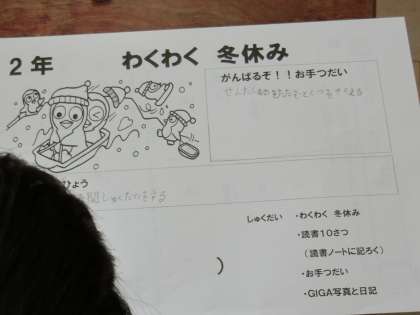 2年 わくわく 冬休み
がんばるぞ！！お手つだい
せんたくものをたたむ
ひょう
しゅくだいをする
しゅくだい ・わくわく 冬休み
・読書10さつ
（読書ノートに記ろく）
・お手つだい
・GIGA写真と日記
）